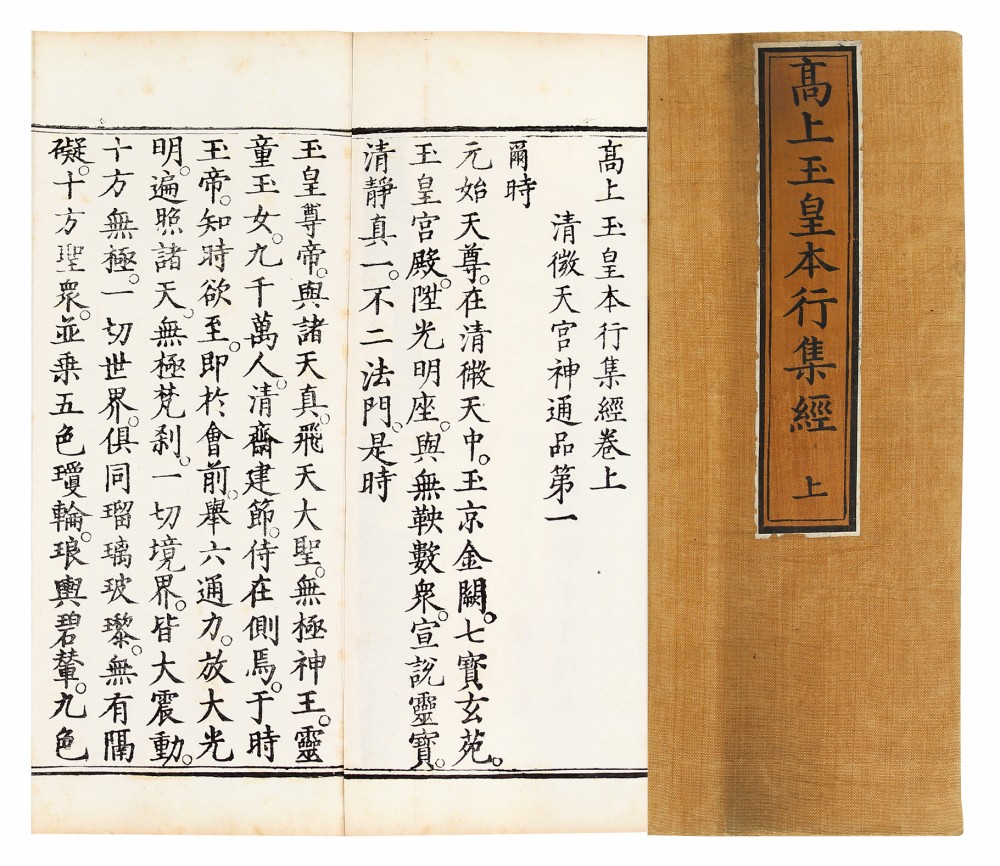 高上玉皇本行集經 上
高上玉皇本行集經卷上
清微天宮神通品第一
爾時
元始天尊。在清微天中。玉京金闕。七寶玄苑。
玉皇宮殿。陞光明座。與無鞅數眾。宣說靈寶。
清靜真一。不二法門。是時
玉皇尊帝。與諸天真。飛天大聖。無極神王。靈
童玉女。九千萬人。清齋建節。侍在側焉。于時
玉帝。知時欲至。即於會前。舉六通力。放大光
明。遍照諸天。無極梵剎。一切境界。皆大震動。
十方無極。一切世界。俱同瑠璃玻瓈。無有隔
礙。十方聖眾。並乘五色瓊輪。琅輿碧輦。九色